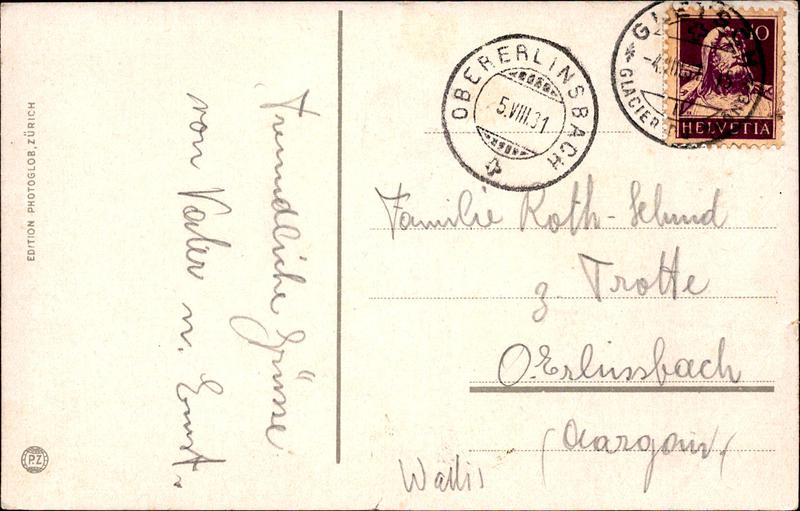 EDITION PHOTOGLOB, ZÜRICH
PZ
Freundliche Grüsse
von Vater u. Ernst.
OBERERLINSBACH
5.VIII.31
GLETSCH
GLACIER
10
HELVETIA
Familie Roth-Schmid
z. Trotte
O.Erlinsbach
(Aargau)
Wallis